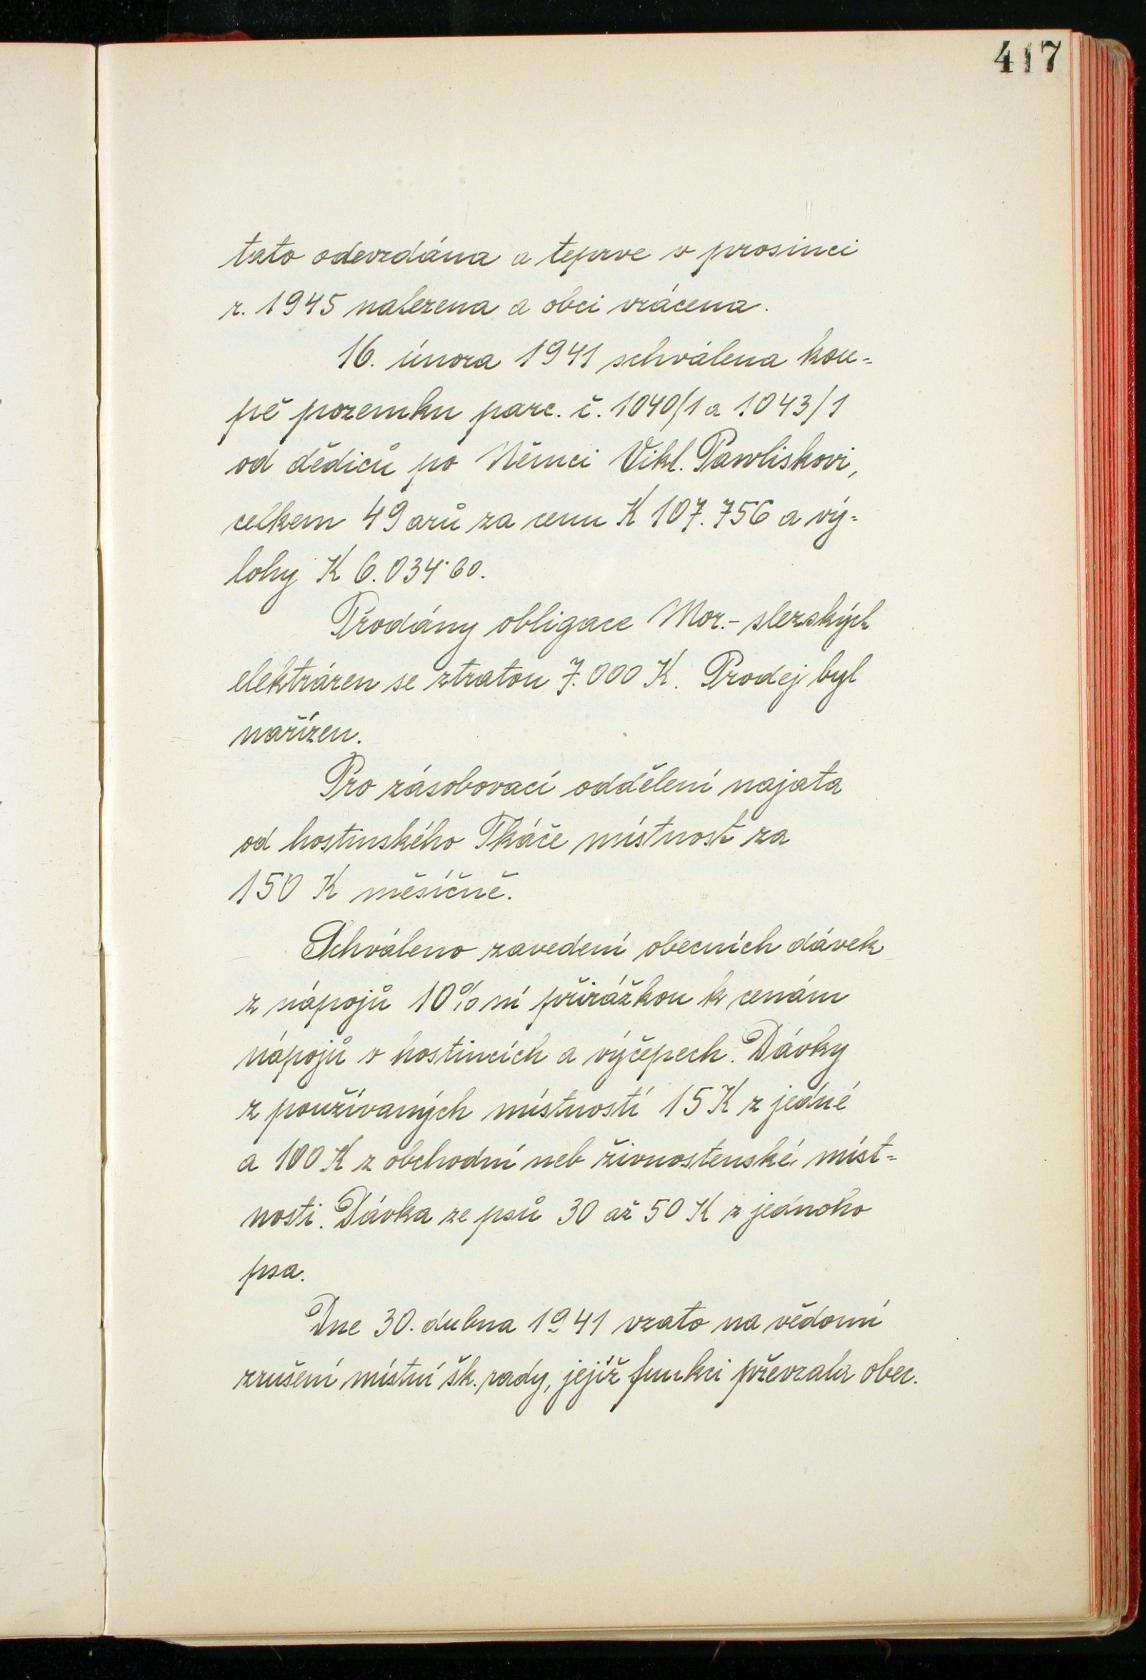 417
tato odevzdána a teprve v prosinci
r. 1945 nalezena a obci vrácena.
16. února 1941 schválena kou-
pě pozemku parc. č. 1040/1 a 1043/1
od dědiců po Němci Vikt. Pawliskovi,
celkem 49 arů za cenu K 107.756 a vý-
lohy K 6.034·60.
Prodány obligace Mor.- slezských
elektráren se ztratou 7.000 K. Prodej byl
nařízen.
Pro zásobovací oddělení najata
od hostinského Tkáče místnost za
150 K měsíčně.
Schváleno zavedení obecních dávek
z nápojů 10% ní přirážkou k cenám
nápojů v hostincích a výčepech. Dávky
z používaných místností 15 K z jedné
a 100 K z obchodní neb živnostenské míst-
nosti. Dávka ze psů 30 až 50 K z jednoho
psa.
Dne 30. dubna 1941 vzato na vědomí
zrušení místní šk. rady, jejíž funkci převzala obec.